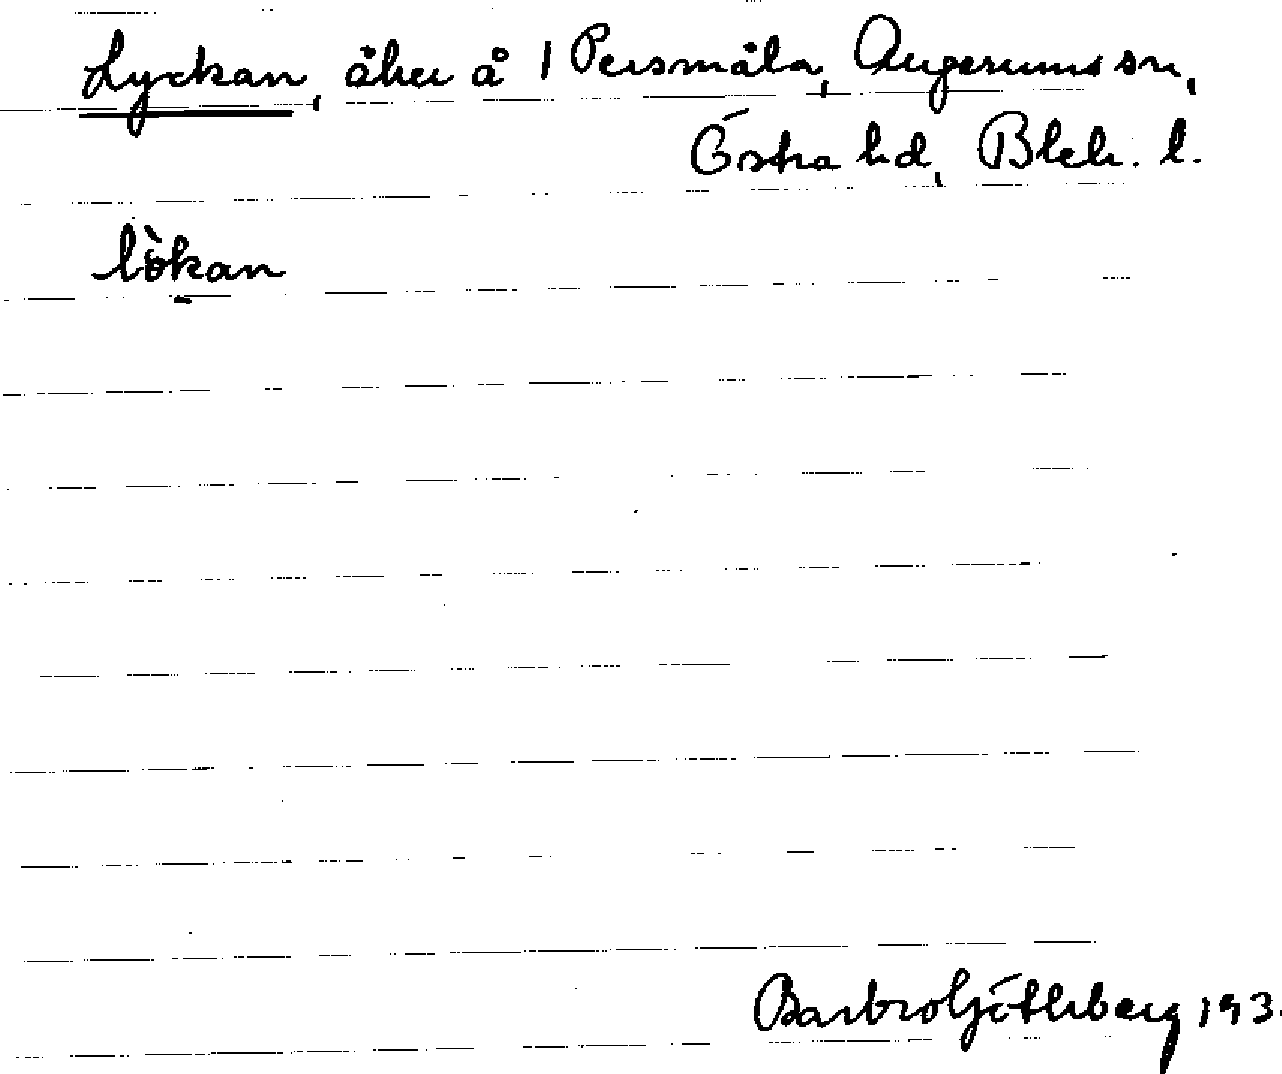 Lyckan, åker å 1 Persmåla, Augerums sn,
Östra hd, Blek. l.
lökan
Barbro Götherberg 193